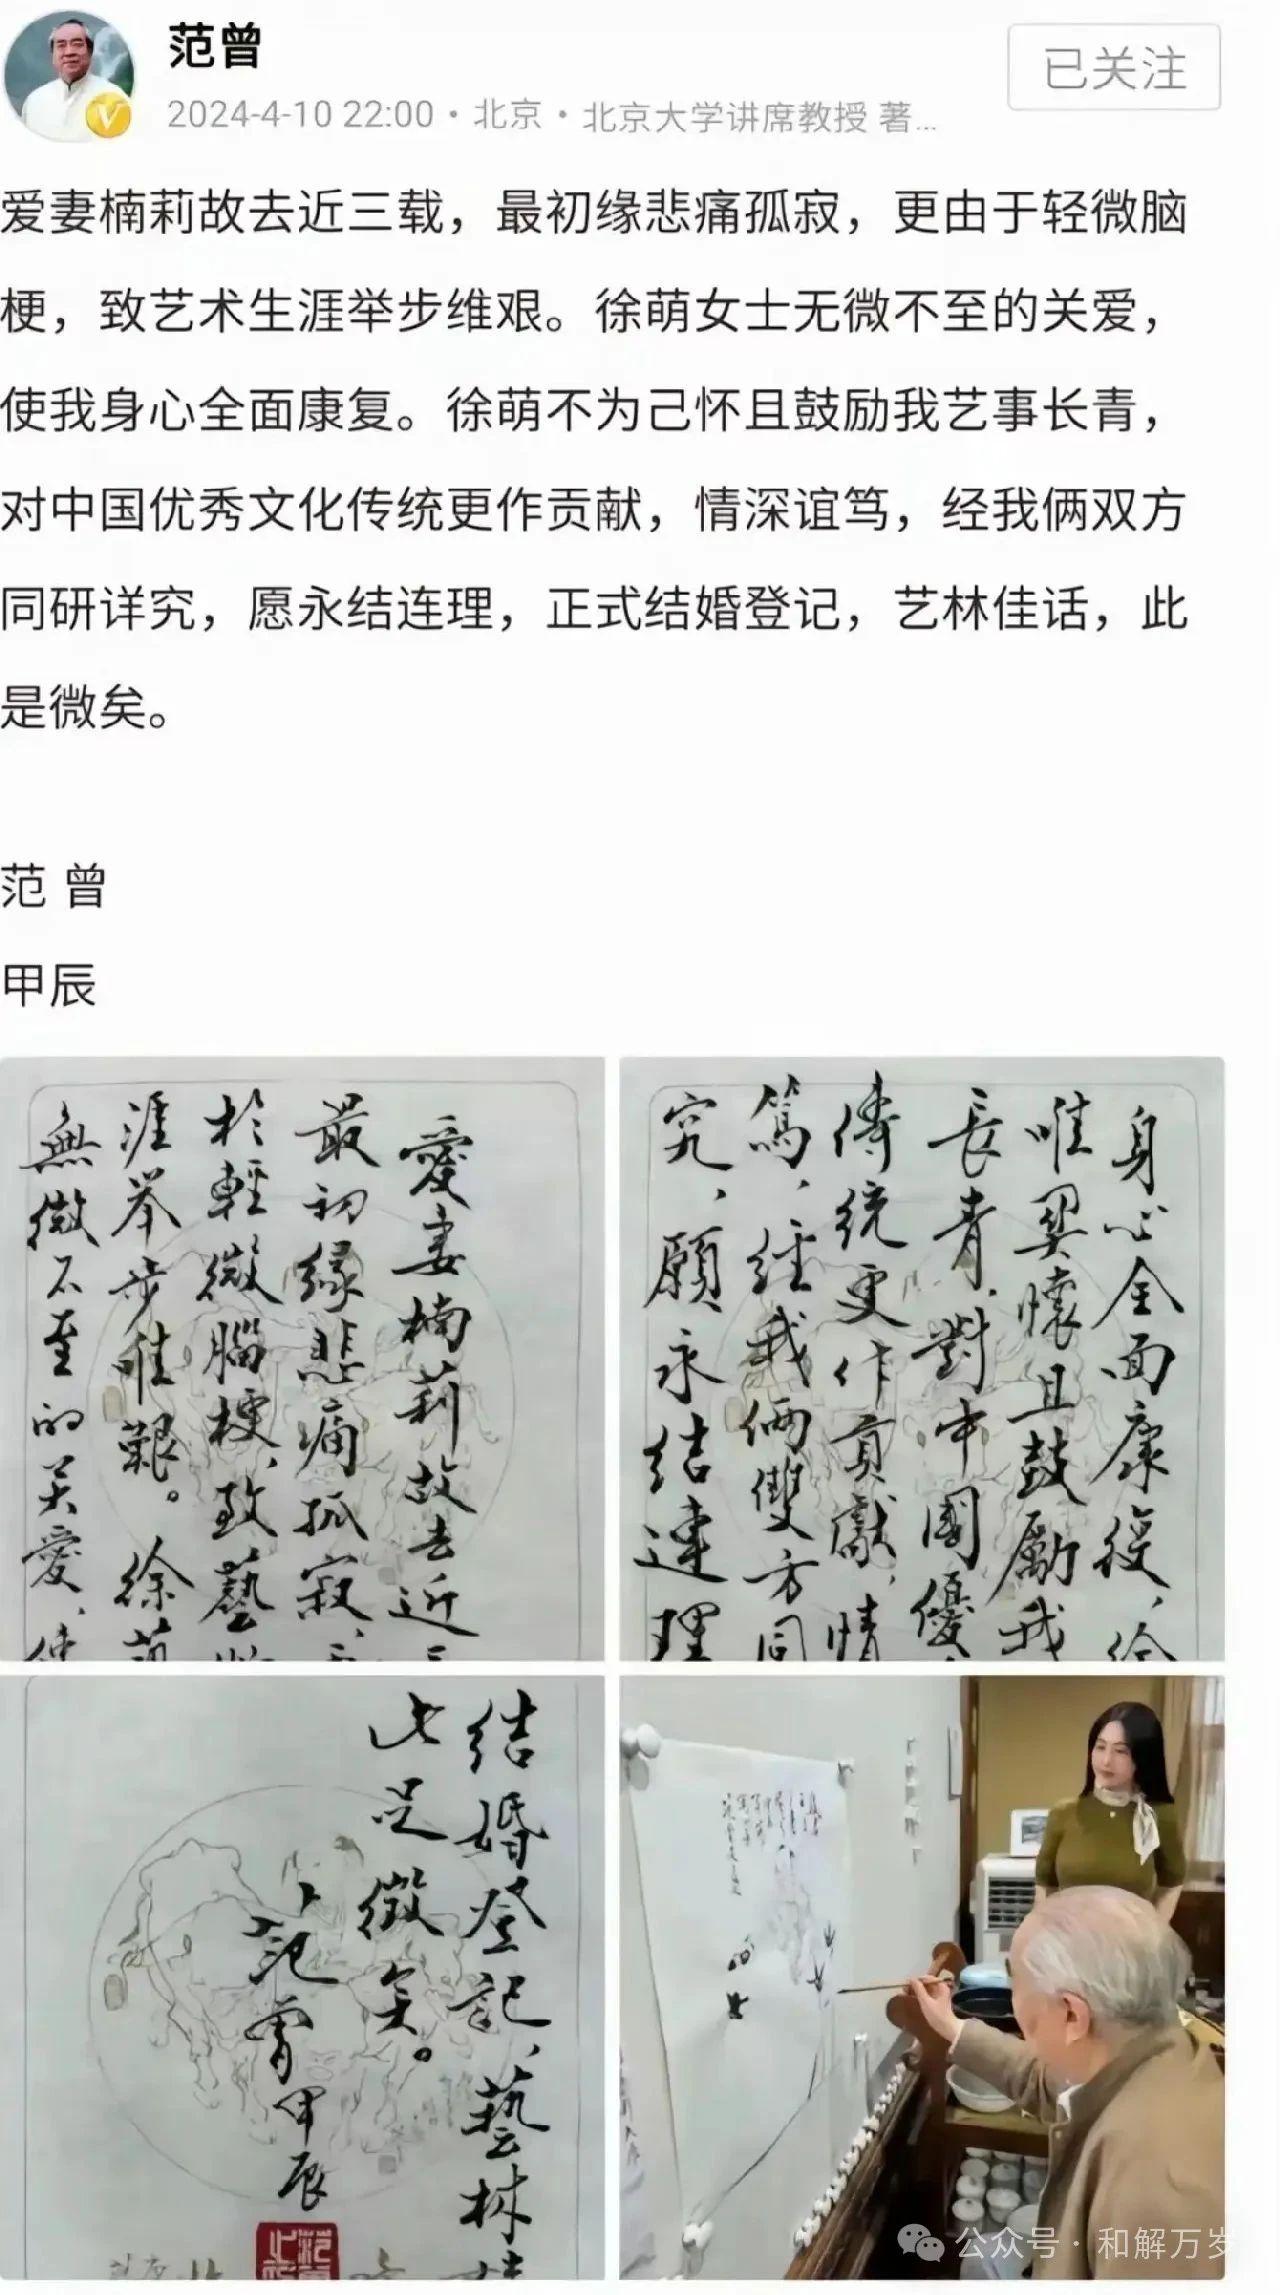 范曾
已关注
2024-4-10 22:00 · 北京 · 北京大学讲席教授 著...
爱妻楠莉故去近三载，最初缘悲痛孤寂，更由于轻微脑
梗，致艺术生涯举步维艰。徐萌女士无微不至的关爱，
使我身心全面康复。徐萌不为己怀且鼓励我艺事长青，
对中国优秀文化传统更作贡献，情深谊笃，经我俩双方
同研详究，愿永结连理，正式结婚登记，艺林佳话，此
是微矣。
范 曾
甲辰
愛妻楠莉故去近三
最初緣悲痛孤寂、
於輕微腦梗、致藝
涯举步唯艱。徐萌
無微不至的关爱、使
身心全面康復、徐
唯 懷且鼓勵我
長青、對中國優
傳統更作貢獻、情
篤、經我俩雙方同
究、願永結連理
結婚登記、藝林
此足徵矣。
范曾甲辰
公众号 · 和解万岁